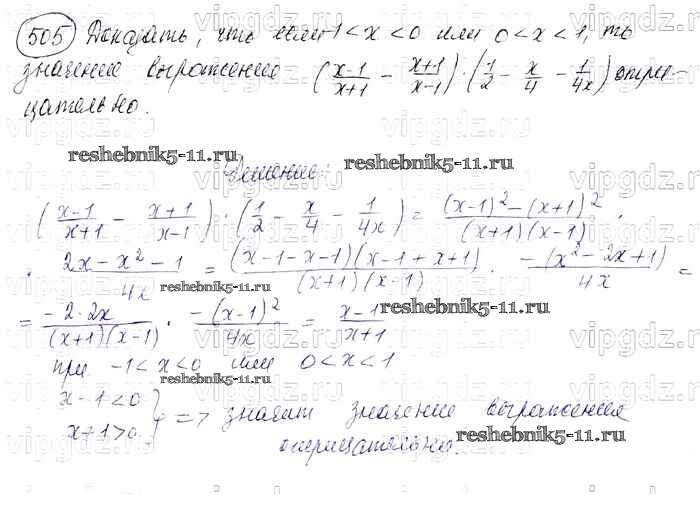 505 Доказать, что если -1 < x < 0 или 0 < x < 1, то
значение выражение ( x-1 / x+1 - x+1 / x-1 ) : ( 1/2 - x/4 - 1/4x ) отри-
цательно.
reshebnik5-11.ru Решение: reshebnik5-11.ru
( x-1 / x+1 - x+1 / x-1 ) : ( 1/2 - x/4 - 1/4x ) = (x-1)² - (x+1)² / (x+1)(x-1) :
: 2x - x² - 1 / 4x = (x-1-x-1)(x-1+x+1) / (x+1)(x-1) · -(x² - 2x + 1) / 4x =
reshebnik5-11.ru
= -2·2x / (x+1)(x-1) · -(x-1)² / 4x = x-1 / x+1
reshebnik5-11.ru
при -1 < x < 0 или 0 < x < 1
reshebnik5-11.ru
x-1 < 0
x+1 > 0 } => значит значение выражения
отрицательно. reshebnik5-11.ru
vipgdz.ru